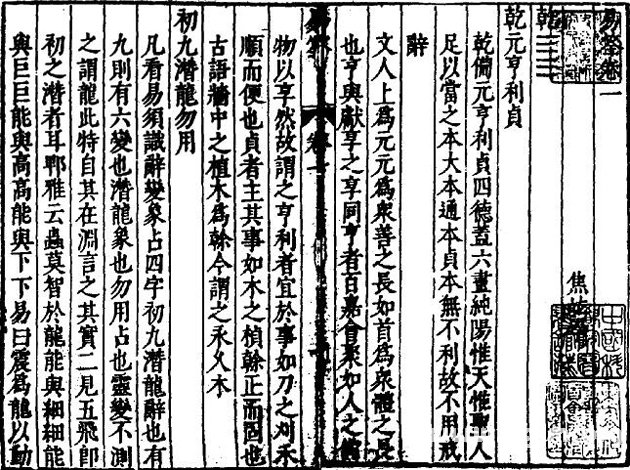 易筌卷一
焦
乾
乾元亨利貞
乾備元亨利貞四德蓋六畫純陽惟天惟聖人
足以當之本大本通本貞本無不利故不用戒
辭
文人上爲元元爲衆善之長如首爲衆體之長
也亨與獻享之享同亨者百嘉會聚如人之備
卷一
物以享然故謂之亨利者宜於事如刀之刈禾
順而便也貞者主其事如木之楨榦正而固也
古語牆中之植木爲榦今謂之永乂木
初九潛龍勿用
凡看易須識辭變象占四字初九潛龍辭也有
九則有六變也潛龍象也勿用占也靈變不測
之謂龍此特自其在淵言之其實二見五飛卽
初之潛者耳郫雅云蟲莫智於龍能與細細能
與巨巨能與高高能與下下易曰震爲龍以動